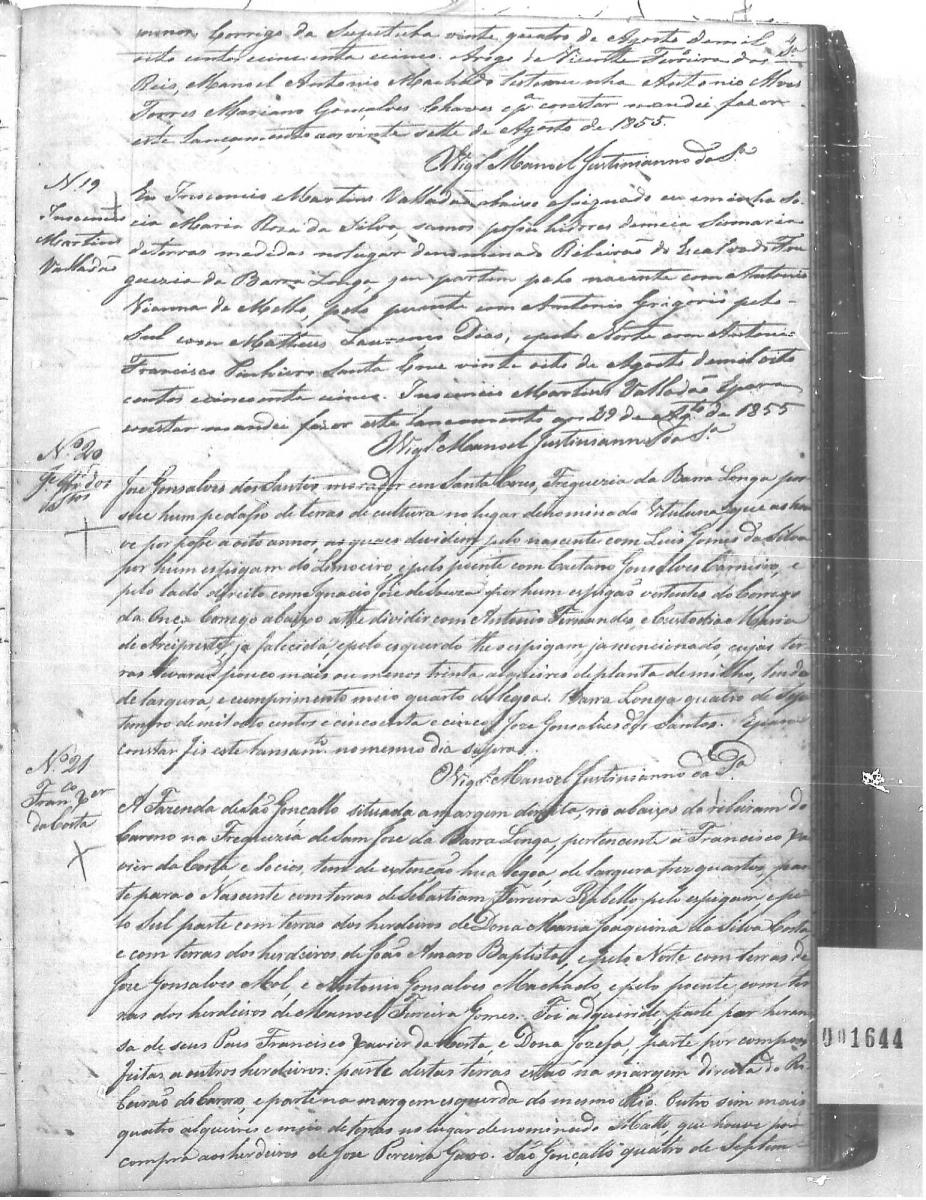 menor, Corrigo da vinte quatro de Agosto de mil
oito centos cinco enta cinco. Arogo de Vicente Ferreira dos
Reis, Manoel Antonio Machado testemunha Antonio Alves
Torres Mariano Gonçalves Chaves e pª constar mandei fazer
este lançamento aos vinte sette de Agosto de 1855.
Vigº Manoel Justiniano da Sª
Nº 19
Innocencio
Martins
Valladão
Eu Innocencio Martins Valladão abaixo asignado eu e minha So-
cia Maria Roza da Silva, samos pesuhidores de meia Sismaria
de terras medidas no lugar denominado Ribeirão do Escalvado Fre
guezia da Barra Longa, que partem pelo nacente com Antonio
Vianna de Mello, pelo puente com Antonio Grigorio pelo-
Sul com Matheus Lourenço Dias, e pelo Norte com Antonio
Francisco Pinheiro Santa Cruz vinte oito de Agosto de mil oito
centos e cinco enta cinco. Innocencio Martins Valladão E para
constar mandei fazer este lancamento aos 29 de Agto de 1855
Vigº Manoel Justinianno da Sª
Nº 20
Je dos
José Gonsalves dos Santos morador em Santa Cruz, Freguezia da Barra Longa pos
sue hum pedaso de terras de cultura no lugar denominado que as hou
ve por posse a oito annos, as quaes dividem pelo nascente com Luis Gomes da Silva
por hum espigam do Limoeiro e pelo puente com Caetano Gonsalves Carneiro, e
pelo lado direito com Ignacio José de Souza por hum espigão vertentes do Corrego
da Onca Corrego abaixo athe dividir com Antonio Fernandes, e Custodia Maria
de ja falecida e pelo esquerdo the o espigam ja mencionado, cujas ter
ras levarao pouco mais ou menos trinta alqueires de planta de milho, tendo
de largura, e cumprimento meio quarto de legoa. Barra Longa quatro de Sep
tembro de mil oito centos e cincoenta e cinco José Gonsalves dos Santos. E para
constar fis este lansamto no mesmo dia supra.
Vigº Manoel Justinianno da Sª
Nº 21
Franco Xer
da Costa
A Fazenda de São Goncallo situada a margem direita, rio abaixo do ribeiram do
Carmo na Freguezia de Sam Jose da Barra Longa, pertencente a Francisco Xa
vier da Costa e Socios, tem de extenção hua legoa, de largura tres quartos, par
te para o Nascente com terras de Sebastiam Ferreira Rebello pelo espigam e pe
lo Sul parte com terras dos herdeiros de Dona Maria Joaquina da Silva Costa
e com terras dos herdeiros de João Amaro Baptista, e pelo Norte com terras de
Jose Gonsalves Mol, e Antonio Gonsalves Machado, e pelo puente com ter
ras dos herdeiros de Manoel Ferreira Gomes. Foi adquerida, parte por heran
sa de seus Pais Francisco Xavier da Costa, e Dona Jozefa, parte por compras
feitas a outros herdeiros: parte destas terras estão na margem direita do Ri
beirão do Carmo, e parte na margem esquerda do mesmo Rio. Outro sim mais
quatro alqueires e meio de terras no lugar denominado Matto, que houve por
compra aos herdeiros de Jose Pereira. São Gonçallo quatro de Septem
001644